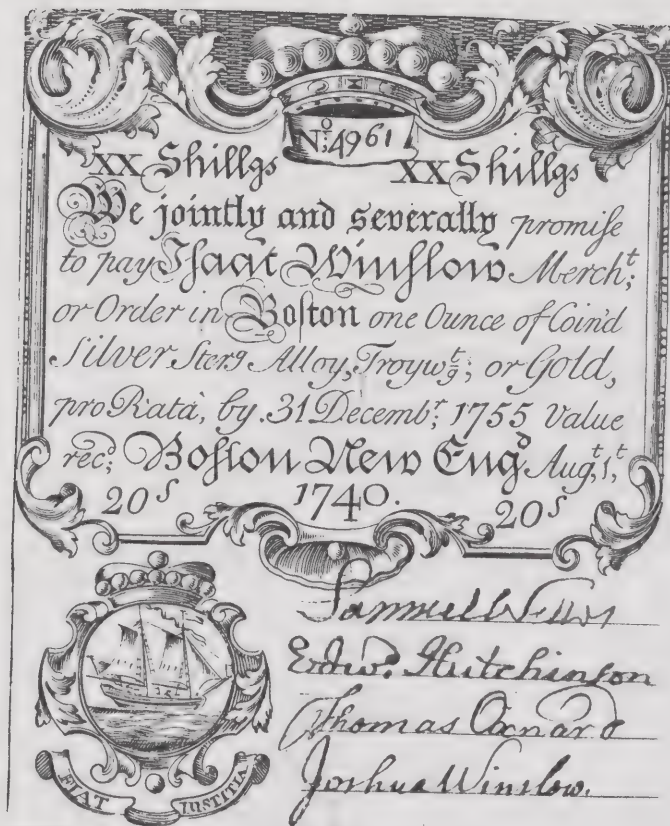 No; 4961
XX Shillgs XX Shillgs
We jointly and severally promise
to pay Isaac Winslow Mercht;
or Order in Boston one Ounce of Coin'd
Silver Sterg Alloy, Troywtg; or Gold,
pro Rata, by 31 Decembr; 1755 Value
recd; Boston New Engd Augt, 1t,
20s 1740. 20s
Samuel Welles
Edwd. Hutchinson
Thomas Oxnard
Joshua Winslow.
FIAT IUSTITIA